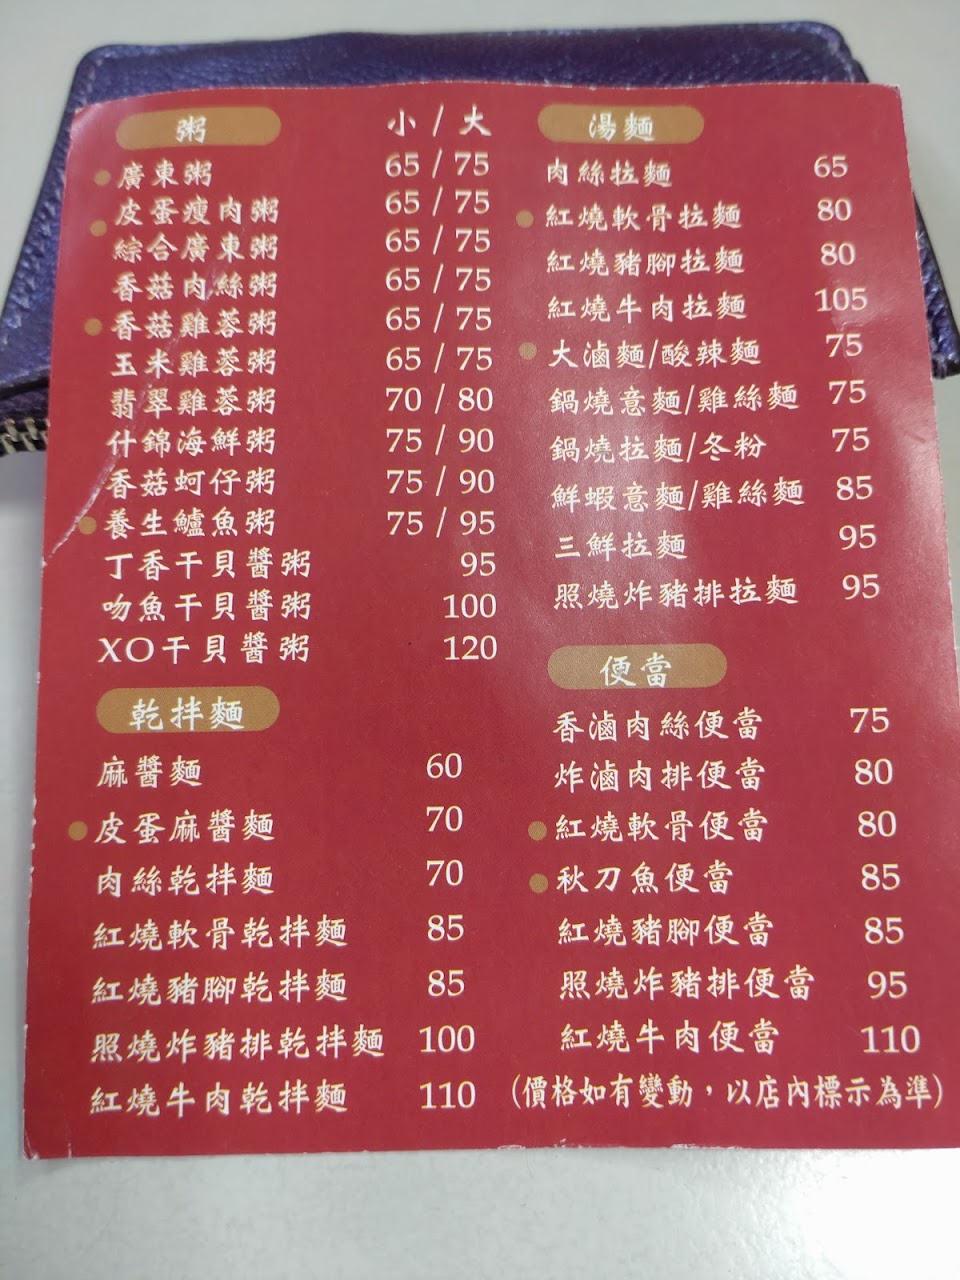 粥 小 / 大
廣東粥 65 / 75
皮蛋瘦肉粥 65 / 75
綜合廣東粥 65 / 75
香菇肉絲粥 65 / 75
香菇雞蓉粥 65 / 75
玉米雞蓉粥 65 / 75
翡翠雞蓉粥 70 / 80
什錦海鮮粥 75 / 90
香菇蚵仔粥 75 / 90
養生鱸魚粥 75 / 95
丁香干貝醬粥 95
吻魚干貝醬粥 100
XO干貝醬粥 120
乾拌麵
麻醬麵 60
皮蛋麻醬麵 70
肉絲乾拌麵 70
紅燒軟骨乾拌麵 85
紅燒豬腳乾拌麵 85
照燒炸豬排乾拌麵 100
紅燒牛肉乾拌麵 110
湯麵
肉絲拉麵 65
紅燒軟骨拉麵 80
紅燒豬腳拉麵 80
紅燒牛肉拉麵 105
大滷麵/酸辣麵 75
鍋燒意麵/雞絲麵 75
鍋燒拉麵/冬粉 75
鮮蝦意麵/雞絲麵 85
三鮮拉麵 95
照燒炸豬排拉麵 95
便當
香滷肉絲便當 75
炸滷肉排便當 80
紅燒軟骨便當 80
秋刀魚便當 85
紅燒豬腳便當 85
照燒炸豬排便當 95
紅燒牛肉便當 110
(價格如有變動，以店內標示為準)